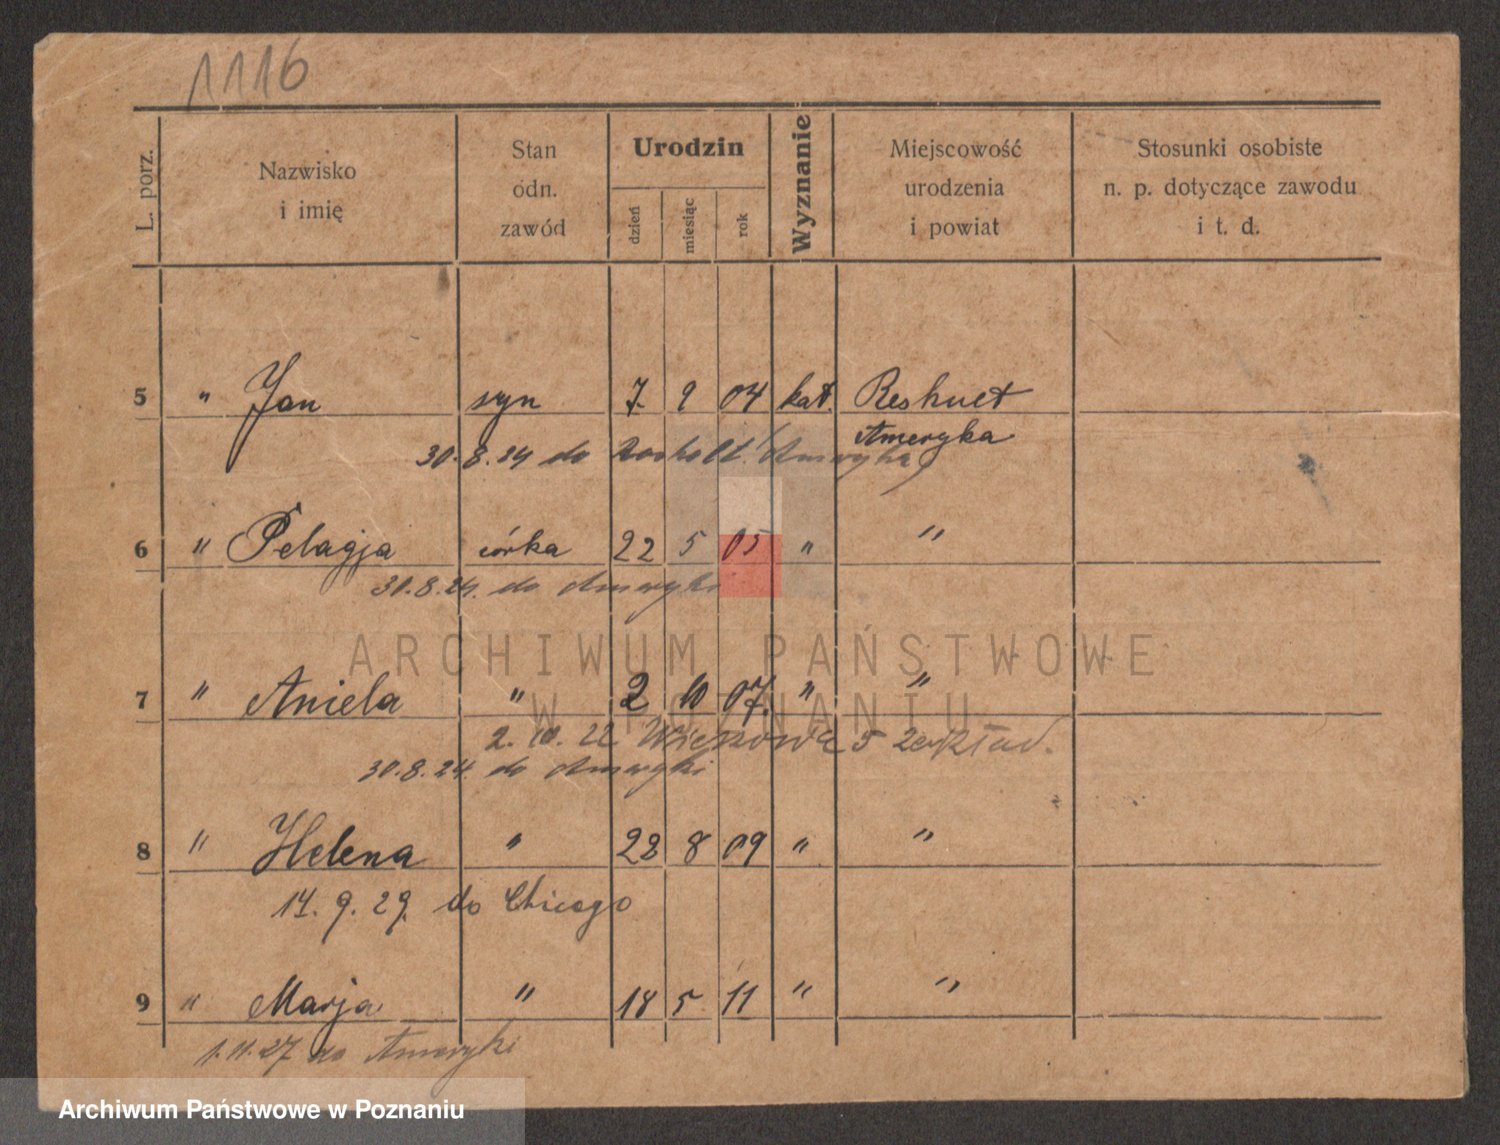 1116
L. porz.
Nazwisko i imię
Stan odn. zawód
Urodzin
dzień
miesiąc
rok
Wyznanie
Miejscowość urodzenia i powiat
Stosunki osobiste n. p. dotyczące zawodu i t. d.
5 " Jan syn 7. 9 04 kat.
Ameryka
30.8.24 do Ameryka
6 " Pelagja córka 22 5 05 " "
30.8.24. do Ameryki
ARCHIWUM PAŃSTWOWE
7 " Aniela " 2 10 07. " "
W POZNANIU
2. 10. 22 5
30.8.24. do Ameryki
8 " Helena " 28 8 09 " "
14. 9. 29. do Chicago
9 " Marja " 18 5 11 " "
1.11.27 do Ameryki
Archiwum Państwowe w Poznaniu